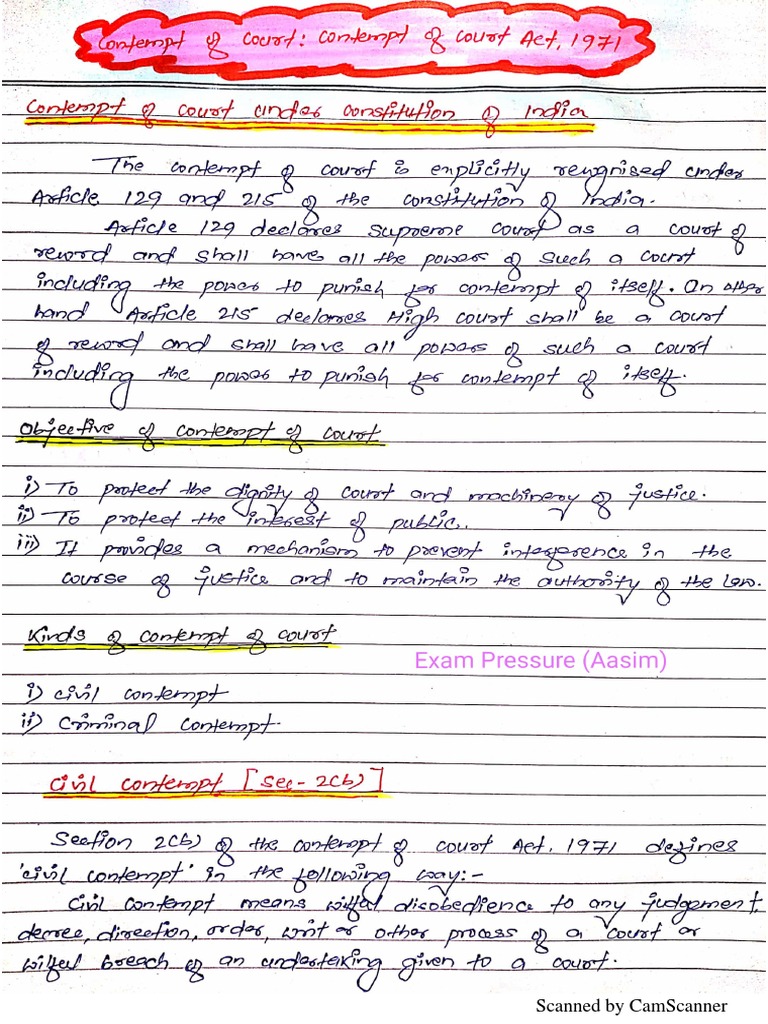 Contempt of court: Contempt of court Act, 1971
Contempt of court under constitution of India
The contempt of court is explicitly recognised under
Article 129 and 215 of the constitution of India.
Article 129 declares Supreme court as a court of
record and shall have all the power of such a court
including the power to punish for contempt of itself. On other
hand Article 215 declares High court shall be a court
of record and shall have all powers of such a court
including the power to punish for contempt of itself.
Objective of contempt of court
i) To protect the dignity of court and machinery of justice.
ii) To protect the interest of public.
iii) It provides a mechanism to prevent interference in the
course of justice and to maintain the authority of the law.
Kinds of contempt of court
Exam Pressure (Aasim)
i) civil contempt
ii) Criminal contempt.
Civil contempt [Sec-2(b)]
Section 2(b) of the contempt of court Act, 1971 defines
'civil contempt' in the following way:-
Civil contempt means wilful disobedience to any judgement,
decree, direction, order, writ or other process of a court or
wilful breach of an undertaking given to a court.
Scanned by CamScanner